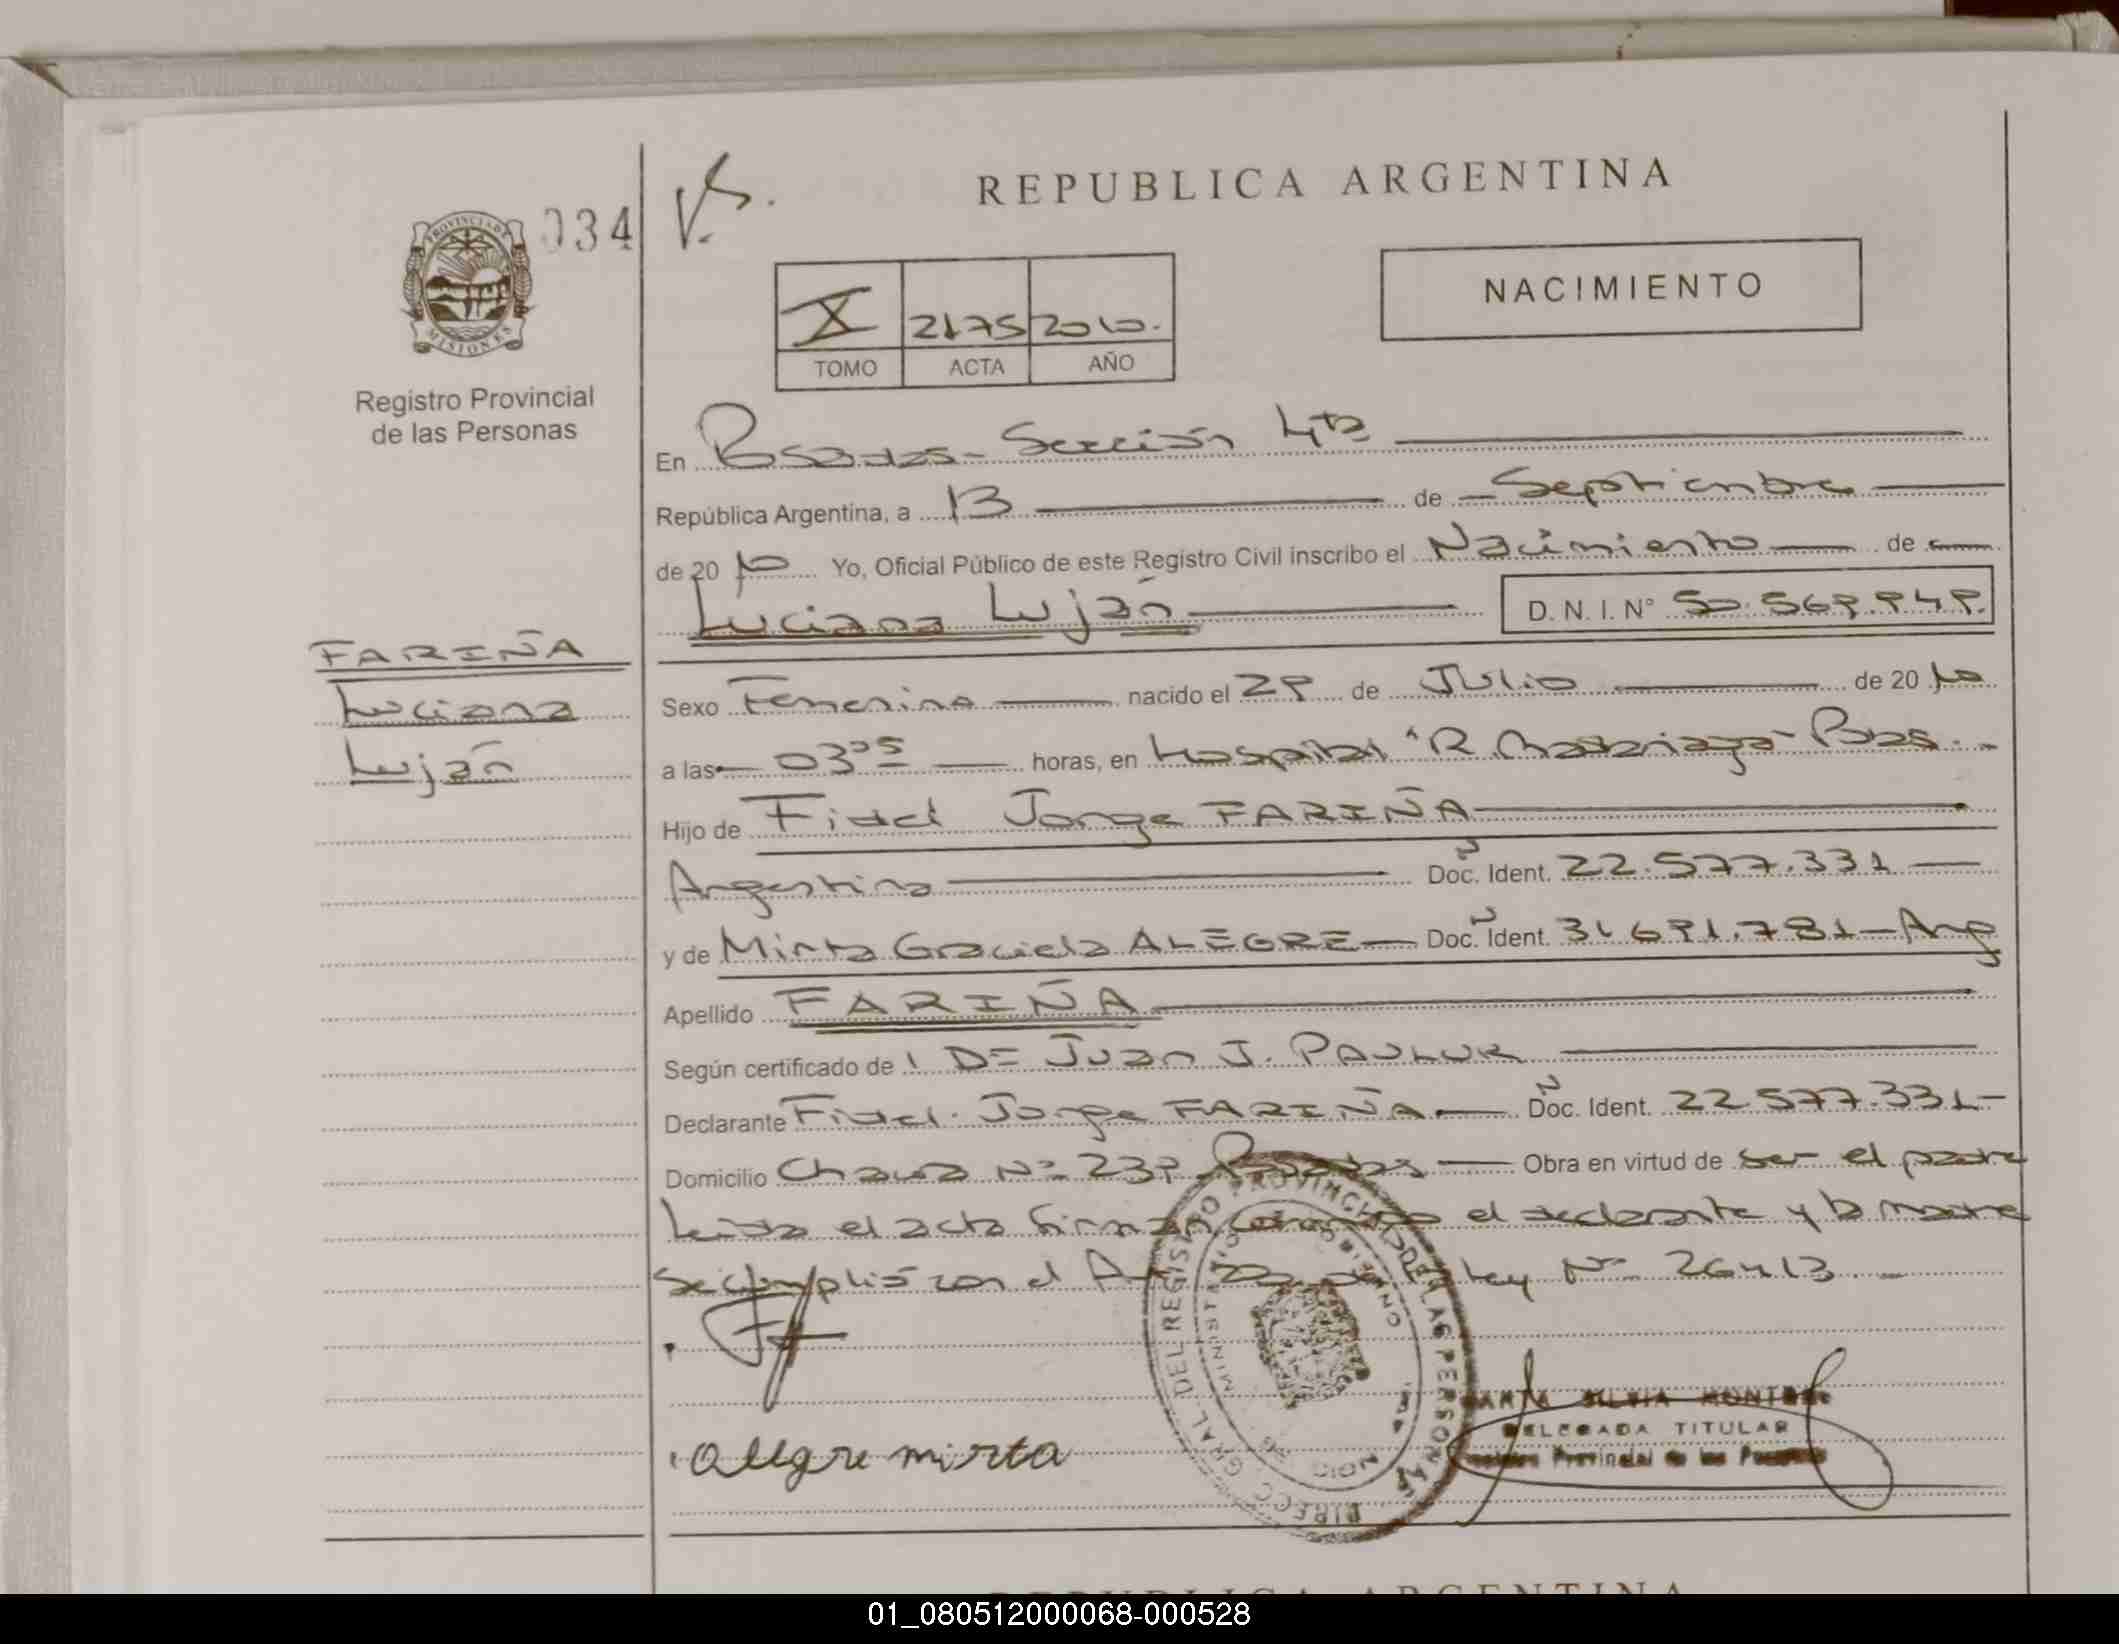 REPUBLICA ARGENTINA
034
PROVINCIA DE
MISIONES
Registro Provincial
de las Personas
X 2175 2010.
TOMO ACTA AÑO
NACIMIENTO
En Posadas - Sección 4ta
República Argentina, a 13 de Septiembre
de 20 10 Yo, Oficial Público de este Registro Civil inscribo el Nacimiento de
Luciana Luján D. N. I. N° 50.569.949.
FARIÑA
Luciana
Luján
Sexo Femenino nacido el 29 de Julio de 20 10
a las 03 05 horas, en Hospital "R. Madariaga" Pdas.
Hijo de Fidel Jorge FARIÑA
Argentino Doc. Ident. 22.577.331
y de Mirta Graciela ALEGRE Doc. Ident. 31.691.781 - Arg
Apellido FARIÑA
Según certificado de Juan J.
Declarante Fidel Jorge FARIÑA Doc. Ident. 22.577.331
Domicilio Chacra Nº 239 Posadas Obra en virtud de ser el padre
Leida el acta firman el declarante y la madre
Se cumplió con el Ley Nº 26413
Allgre mirta
DIRECC. GRAL. DEL REGISTRO PROVINCIAL DE LAS PERSONAS
MINISTERIO DE GOBIERNO
DELEGADA TITULAR
Provincial de las Personas
REPUBLICA ARGENTINA
01_080512000068-000528